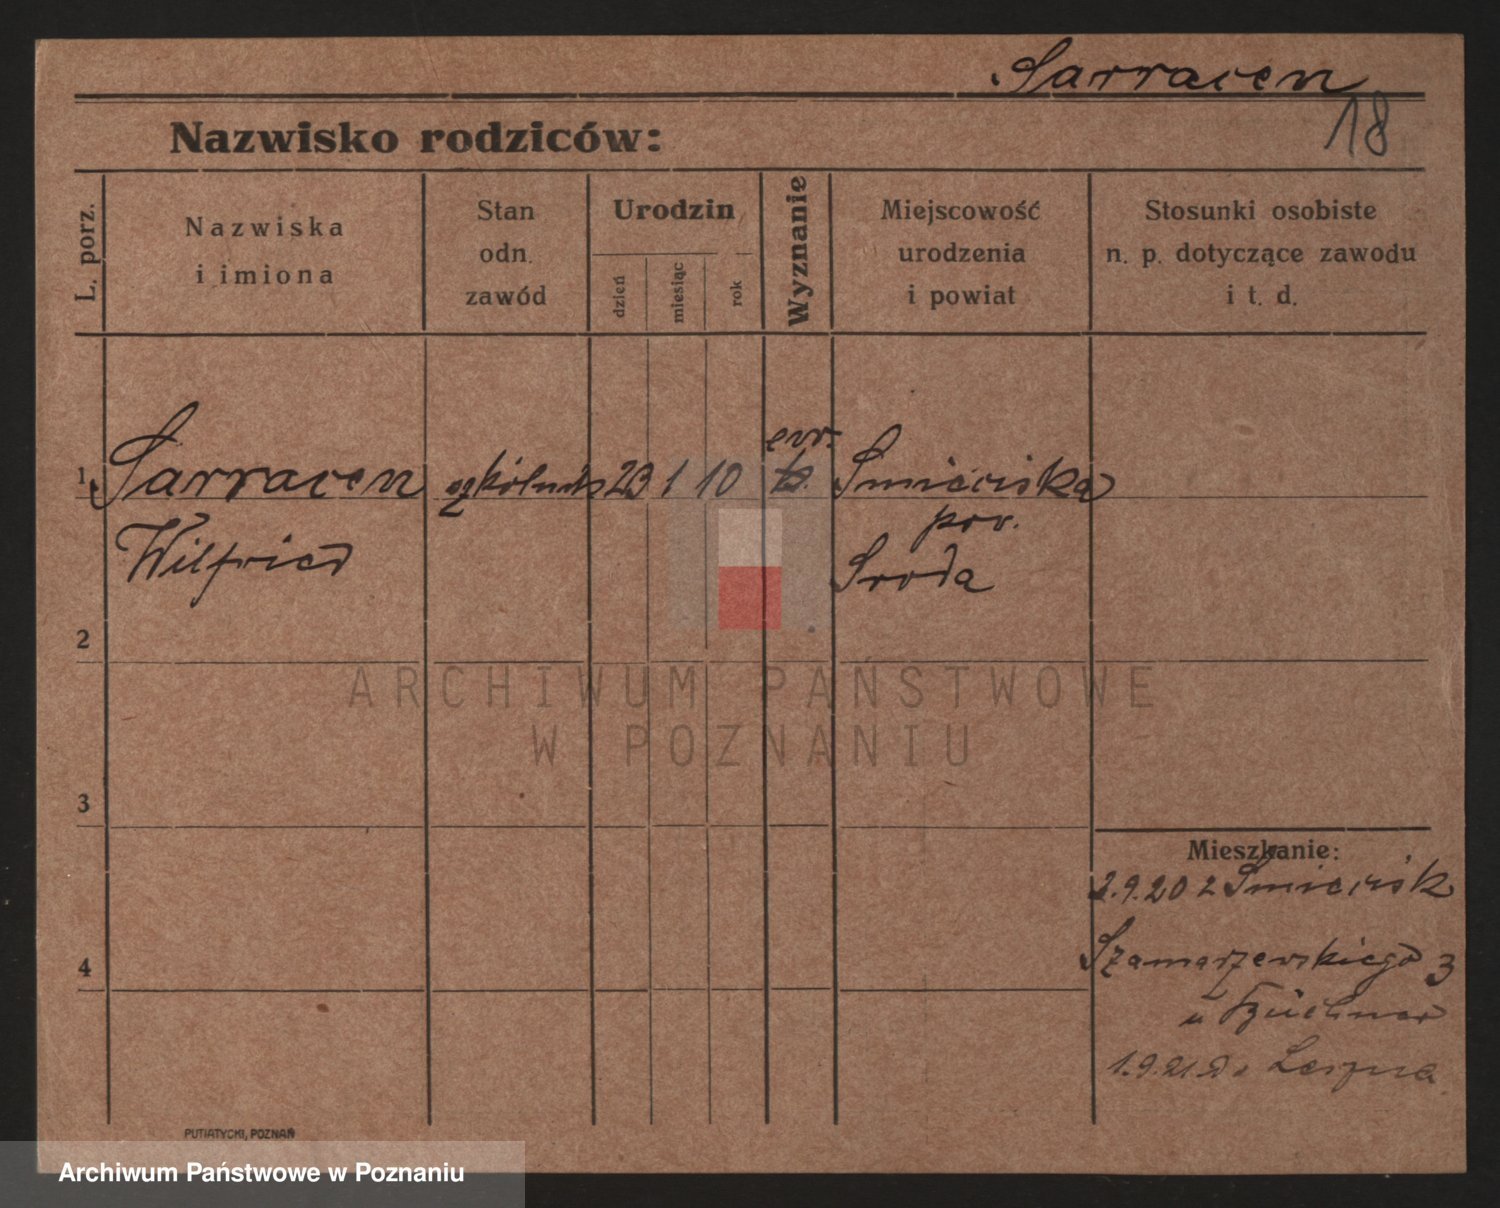 Sarracen
18
Nazwisko rodziców:
L. porz.
Nazwiska
i imiona
Stan
odn.
zawód
Urodzin
dzień
miesiąc
rok
Wyznanie
Miejscowość
urodzenia
i powiat
Stosunki osobiste
n. p. dotyczące zawodu
i t. d.
ew.
1 Sarracen 23 1 10
Wilfried
pow.
Sroda
2
ARCHIWUM PAŃSTWOWE
W POZNANIU
3
Mieszkanie:
2.9.20 z
4
Szamarzewskiego 3
u
1.9.21 Do Leszna
PUTIATYCKI, POZNAŃ
Archiwum Państwowe w Poznaniu